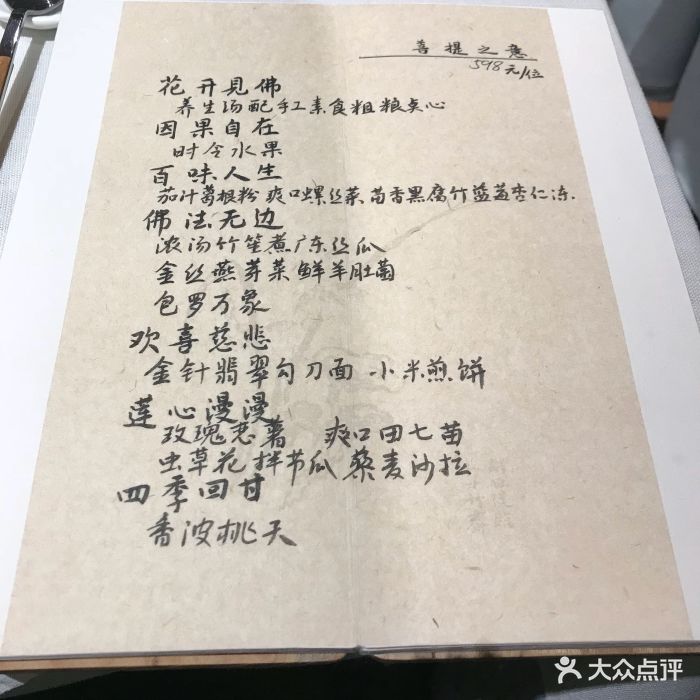 菩提之意
598元/位
花开见佛
养生汤配手工素食粗粮点心
因果自在
时令水果
百味人生
茄汁葛根粉 爽口螺丝菜 茴香黑腐竹 蓝莓杏仁冻.
佛法无边
浓汤竹笙煮广东丝瓜
金丝燕芽菜鲜羊肚菌
包罗万象
欢喜慈悲
金针翡翠勾刀面 小米煎饼
莲心漫漫
玫瑰怒薯 爽口田七苗
虫草花拌节瓜 藜麦沙拉
四季回甘
香波桃天
大众点评